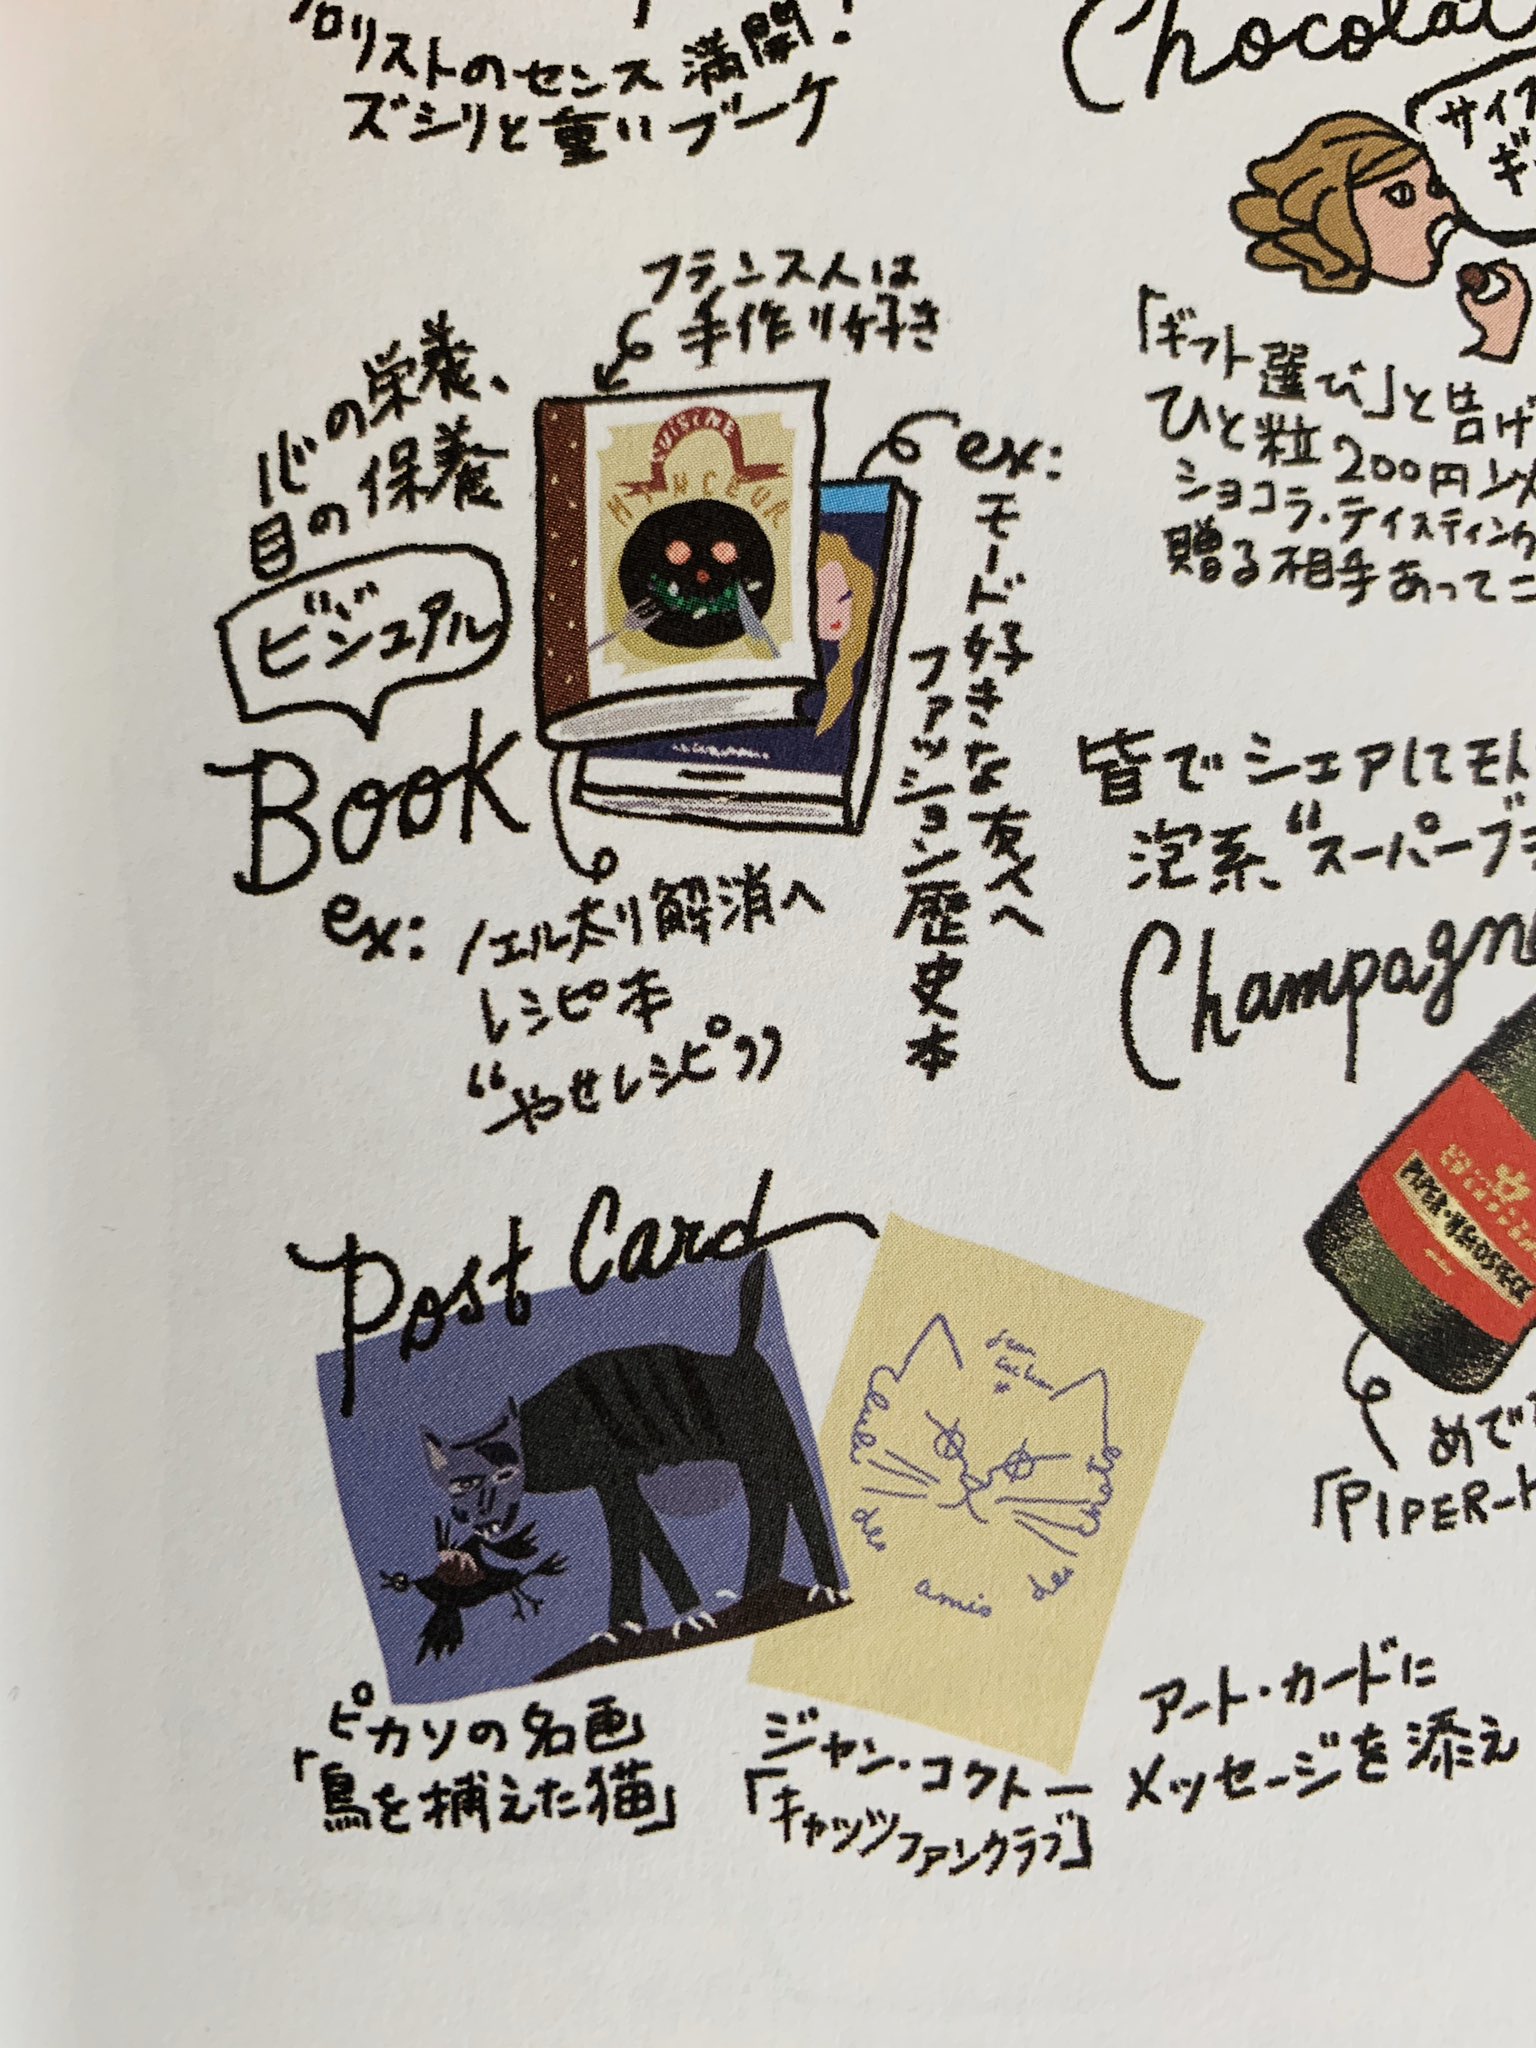 リストのセンス満開!
ズシリと重いブーケ
Chocolat
フランス人は
手作り好き
心の栄養、
目の保養
ビジュアル
Book
CUISINE
MINCEUR
ex:
モード好きな友へ
ファッション歴史本
ex:
ノエル太り解消へ
レシピ本
“やせレシピ”
「ギフト選び」と告げ
ひと粒200円以
ショコラ・テイスティング
贈る相手あってこ
皆でシェアしてモト
泡系、“スーパーブラ
Champagne
PIPER-HEIDSIECK
めで
「PIPER-H
Post Card
Jean
Cocteau
Club
des
amis
des
chats
ピカソの名画
「鳥を捕えた猫」
ジャン・コクトー
「キャッツファンクラブ」
アート・カードに
メッセージを添え